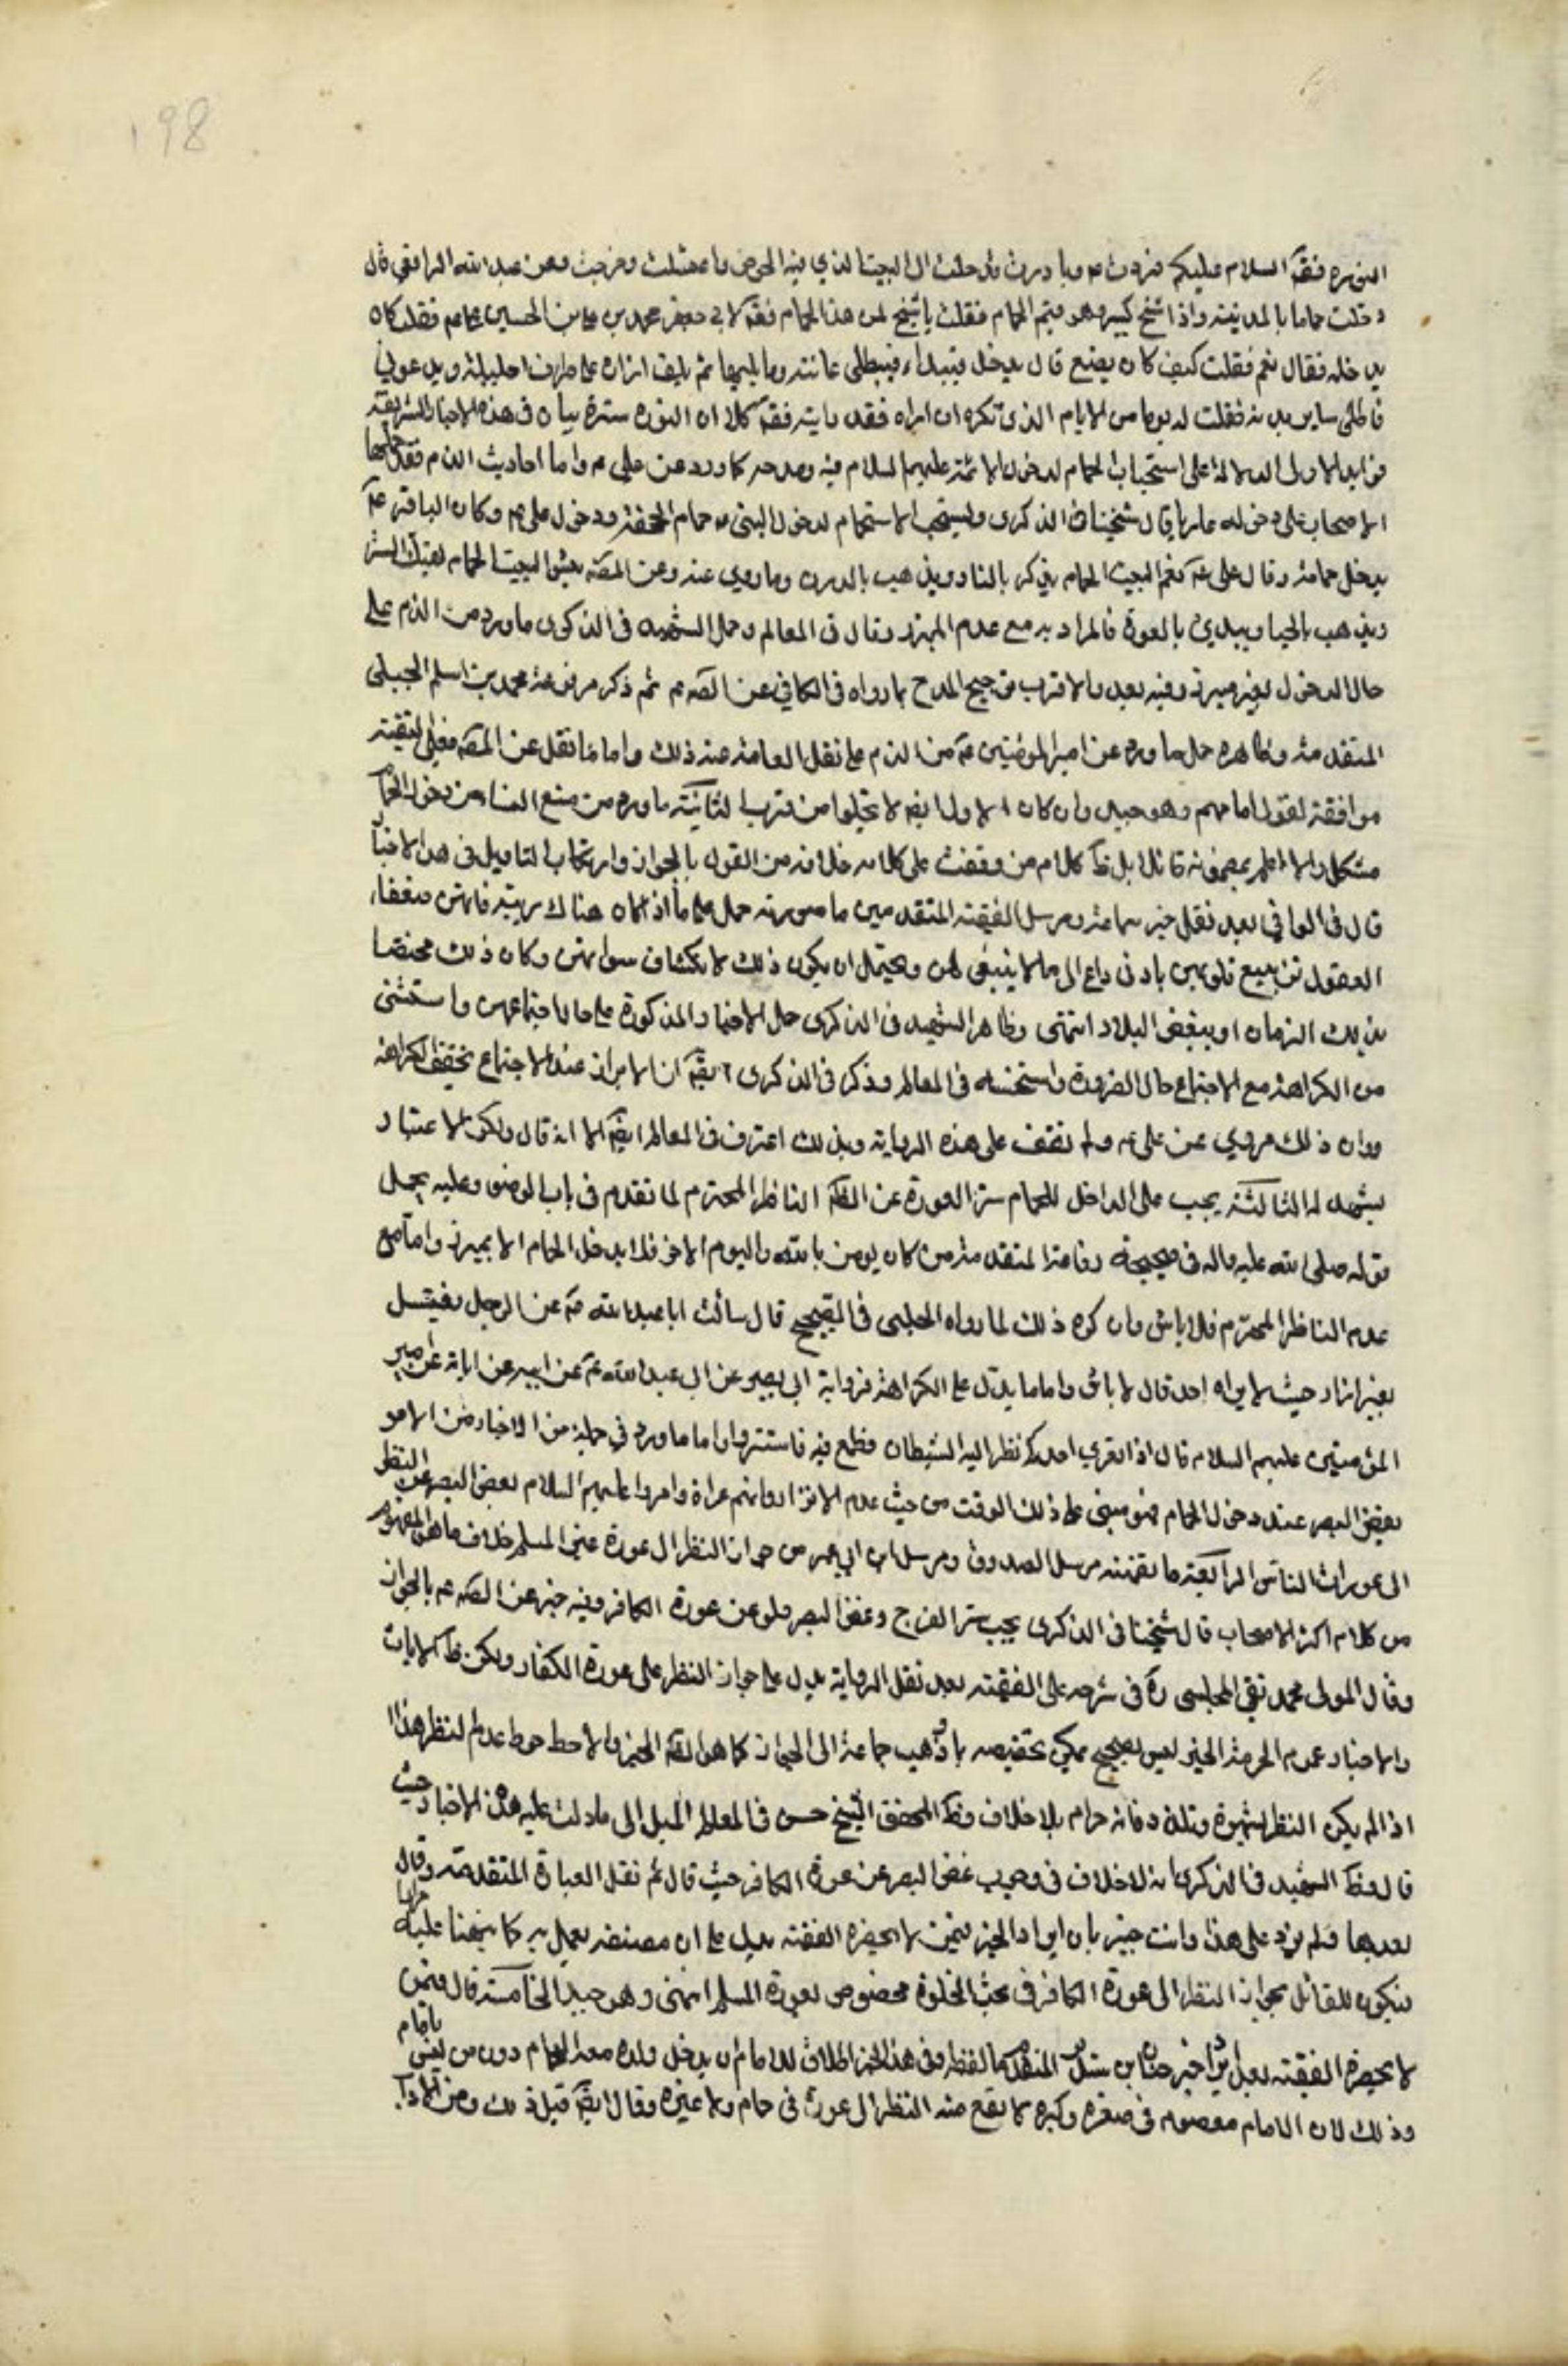 198
النوره فقَه السلام عليكم فردوت عم وبادرت فدخلت الى البيت الذي فيه الحوض فاغتسلت وخرجت وعن عبد الله الرافقي قال
دخلت حماما بالمدينة واذا شيخ كبير وهو قيم الحمام فقلت يا شيخ لمن هذا الحمام فقَه لابي جعفر محمد بن علي بن الحسين فقلت كان
يدخله فقال نعم فقلت كيف كان يصنع قال يدخل فيبداء فيطلي عانته وما يليها ثم يلف ازاره على طرف احليله ويدعوني
فاطلي ساير بدنه فقلت له يوما من الايام الذي تكره ان اراه فقد رايته فقَه كلا ان النوره سترة بيان في هذه الاخبار الشريفة
فوايد الاولى الدلالة على استحباب الحمام لدخول الائمة عليهم السلام فيه ومدحه كما ورد عن علي عم واما احاديث الذم فقد حملها
الاصحاب على دخوله عاريا قال شيخنا في الذكرى ويستحب الاستحمام لدخول النبي ص حمام الجحفة ودخول علي عم وكان الباقر عم
يدخل حمامه وقال علي عم نعم البيت الحمام يذكر بالنار ويذهب بالدرن وما روي عنه وعن الصَه بئس البيت الحمام يهتك الستر
ويذهب بالحيا ويبدي بالعورة فالمراد به مع عدم الميزر وقال في المعالم وحمل الشهيد في الذكرى ما ورد من الذم على
حال الدخول بغير ميزر وفيه بعد والاقرب ترجيح المدح بما رواه في الكافي عن الصَه عم ثم ذكر مرفوعة محمد بن اسلم الجبلي
المتقدمة وظاهره حمل ما ورد عن امير المومنين عم من الذم على نقل العامة عنه ذلك واما ما نقل عن الصَه فعلى التقية
موافقة لقول امامهم وهو جيد وان كان الاول ايضَه لا يخلو من قرب الثانية ما ورد من منع النساء من دخول الحمام
مشكل ولا اعلم بمضمونه قائلا بل ظَه كلام من وقفت على كلامه خلافه من القول بالجواز وارتكاب التاويل في هذه الاخبار
قال في الوافي بعد نقل خبر سماعة ومرسل الفقيه المتقدمين ما صورته حمل على ما اذا كان هناك ريبة فانهن ضعفاء
العقول تزيغ قلوبهن بادنى داع الى ما لا ينبغي لهن ويحتمل ان يكون ذلك لانكشاف سواتهن وكان ذلك مختصا
بذلك الزمان او ببعض البلاد انتهى وظاهر الشهيد في الذكرى حمل الاخبار المذكورة على حال اجتماعهن واستثنى
من الكراهة مع الاجتماع حال الضرورة واستحسنه في المعالم وذكر في الذكرى ايضَه ان الايزار عند الاجتماع يخفف الكراهة
ووان ذلك مروي عن علي عم ولم نقف على هذه الرواية وبذلك اعترف في المعالم ايضَه الا انه قال ولكن الاعتبار
يشهد له الثالثة يجب على الداخل للحمام ستر العورة عن النظَه الناظر المحترم لما تقدم في باب الوضوء وعليه يحمل
قوله صلى الله عليه واله في صحيحة رفاعة المتقدمة من كان يومن بالله واليوم الاخر فلا يدخل الحمام الا بميزر واما مع
عدم الناظر المحترم فلا باس وان كره ذلك لما رواه الحلبي في الصحيح قال سالت ابا عبد الله عم عن الرجل يغتسل
بغير ازار حيث لا يراه احد قال لا باس واما ما يدل على الكراهة فرواية ابي بصير عن ابي عبد الله عم عن ابيه عن ابائه عن امير
المؤمنين عليهم السلام قال اذا تعرى احدكم نظر اليه الشيطان فطمع فيه فاستتروا واما ما ورد في جملة من الاخبار من الامر
بغض البصر عند دخول الحمام فهو مبني على ذلك الوقت من حيث عدم الاتزار وانهم عراة وامروا عليهم السلام بغض البصر عن النظر
الى عورات الناس الرابعة ما تضمنته مرسل الصدوق ومرسل ابن ابي عمير من جواز النظر الى عورة غير المسلم خلاف ما هو المشهور
من كلام اكثر الاصحاب قال شيخنا في الذكرى يجب ستر الفرج وغض البصر ولو عن عورة الكافر وفيه خبر عن الصَه عم بالجواز
وقال المولى محمد تقي المجلسي ره في شرحه على الفقيه بعد نقل الرواية يدل على جواز النظر على عورة الكفار ولكن ظَه الايات
والاخبار عموم الحرمة الخبر ليس بصحيح يمكن تخصيصه به وذهب جماعة الى الجواز كما هو لظَه الخبر والاحط حوط عدم النظر هذا
اذا لم يكن النظر بشهوة وتلذذ فانه حرام بلا خلاف وظَه المحقق الشيخ حسن في المعالم الميل الى ما دلت عليه هذه الاخبار حيث
قال وظَه الشهيد في الذكرى انه لا خلاف في وجوب غض البصر عن عورة الكافر حيث قال ثم نقل العبارة المتقدمة وقال
بعدها ولم يزد على هذا وانت خبير بان ايراد الخبر فيمن لا يحضره الفقيه يدل على ان مصنفه يعمل به كما نبهنا عليه مرارا
فيكون للقائل بجواز النظر الى عورة الكافر في بحث الخلوة مخصوص بعورة المسلم انتهى وهو جيد الخامسة قال فيمن
لا يحضره الفقيه بعد ايراد خبر حنان بن سدير المتقدم ما لفظه وفي هذا الخبر اطلاق للامام ان يدخل ولده معه الحمام دون من ليس بامام
وذلك لان الامام معصوم في صغره وكبره لا يقع منه النظر الى عورة في حمام ولا غيره وقال ايضَه قبل ذلك ومن الاداب